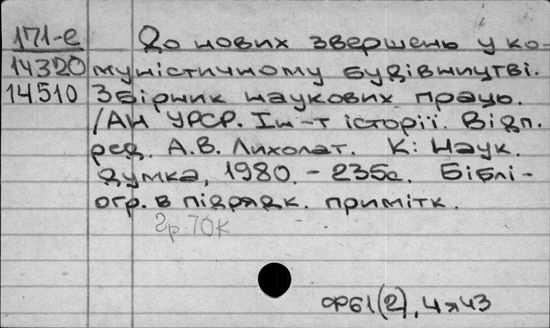 171-е До нових звершень у ко-
14320 муністичному будівництві.
14510 Збірник наукових праць.
/АН УРСР. Ін-т історії. Відп.
ред. А.В. Лихолат. К: Наук.
думка, 1980. - 235с. Біблі-
огр. в підрядк. примітк.
2р.70к
Ф61(2), 4я43